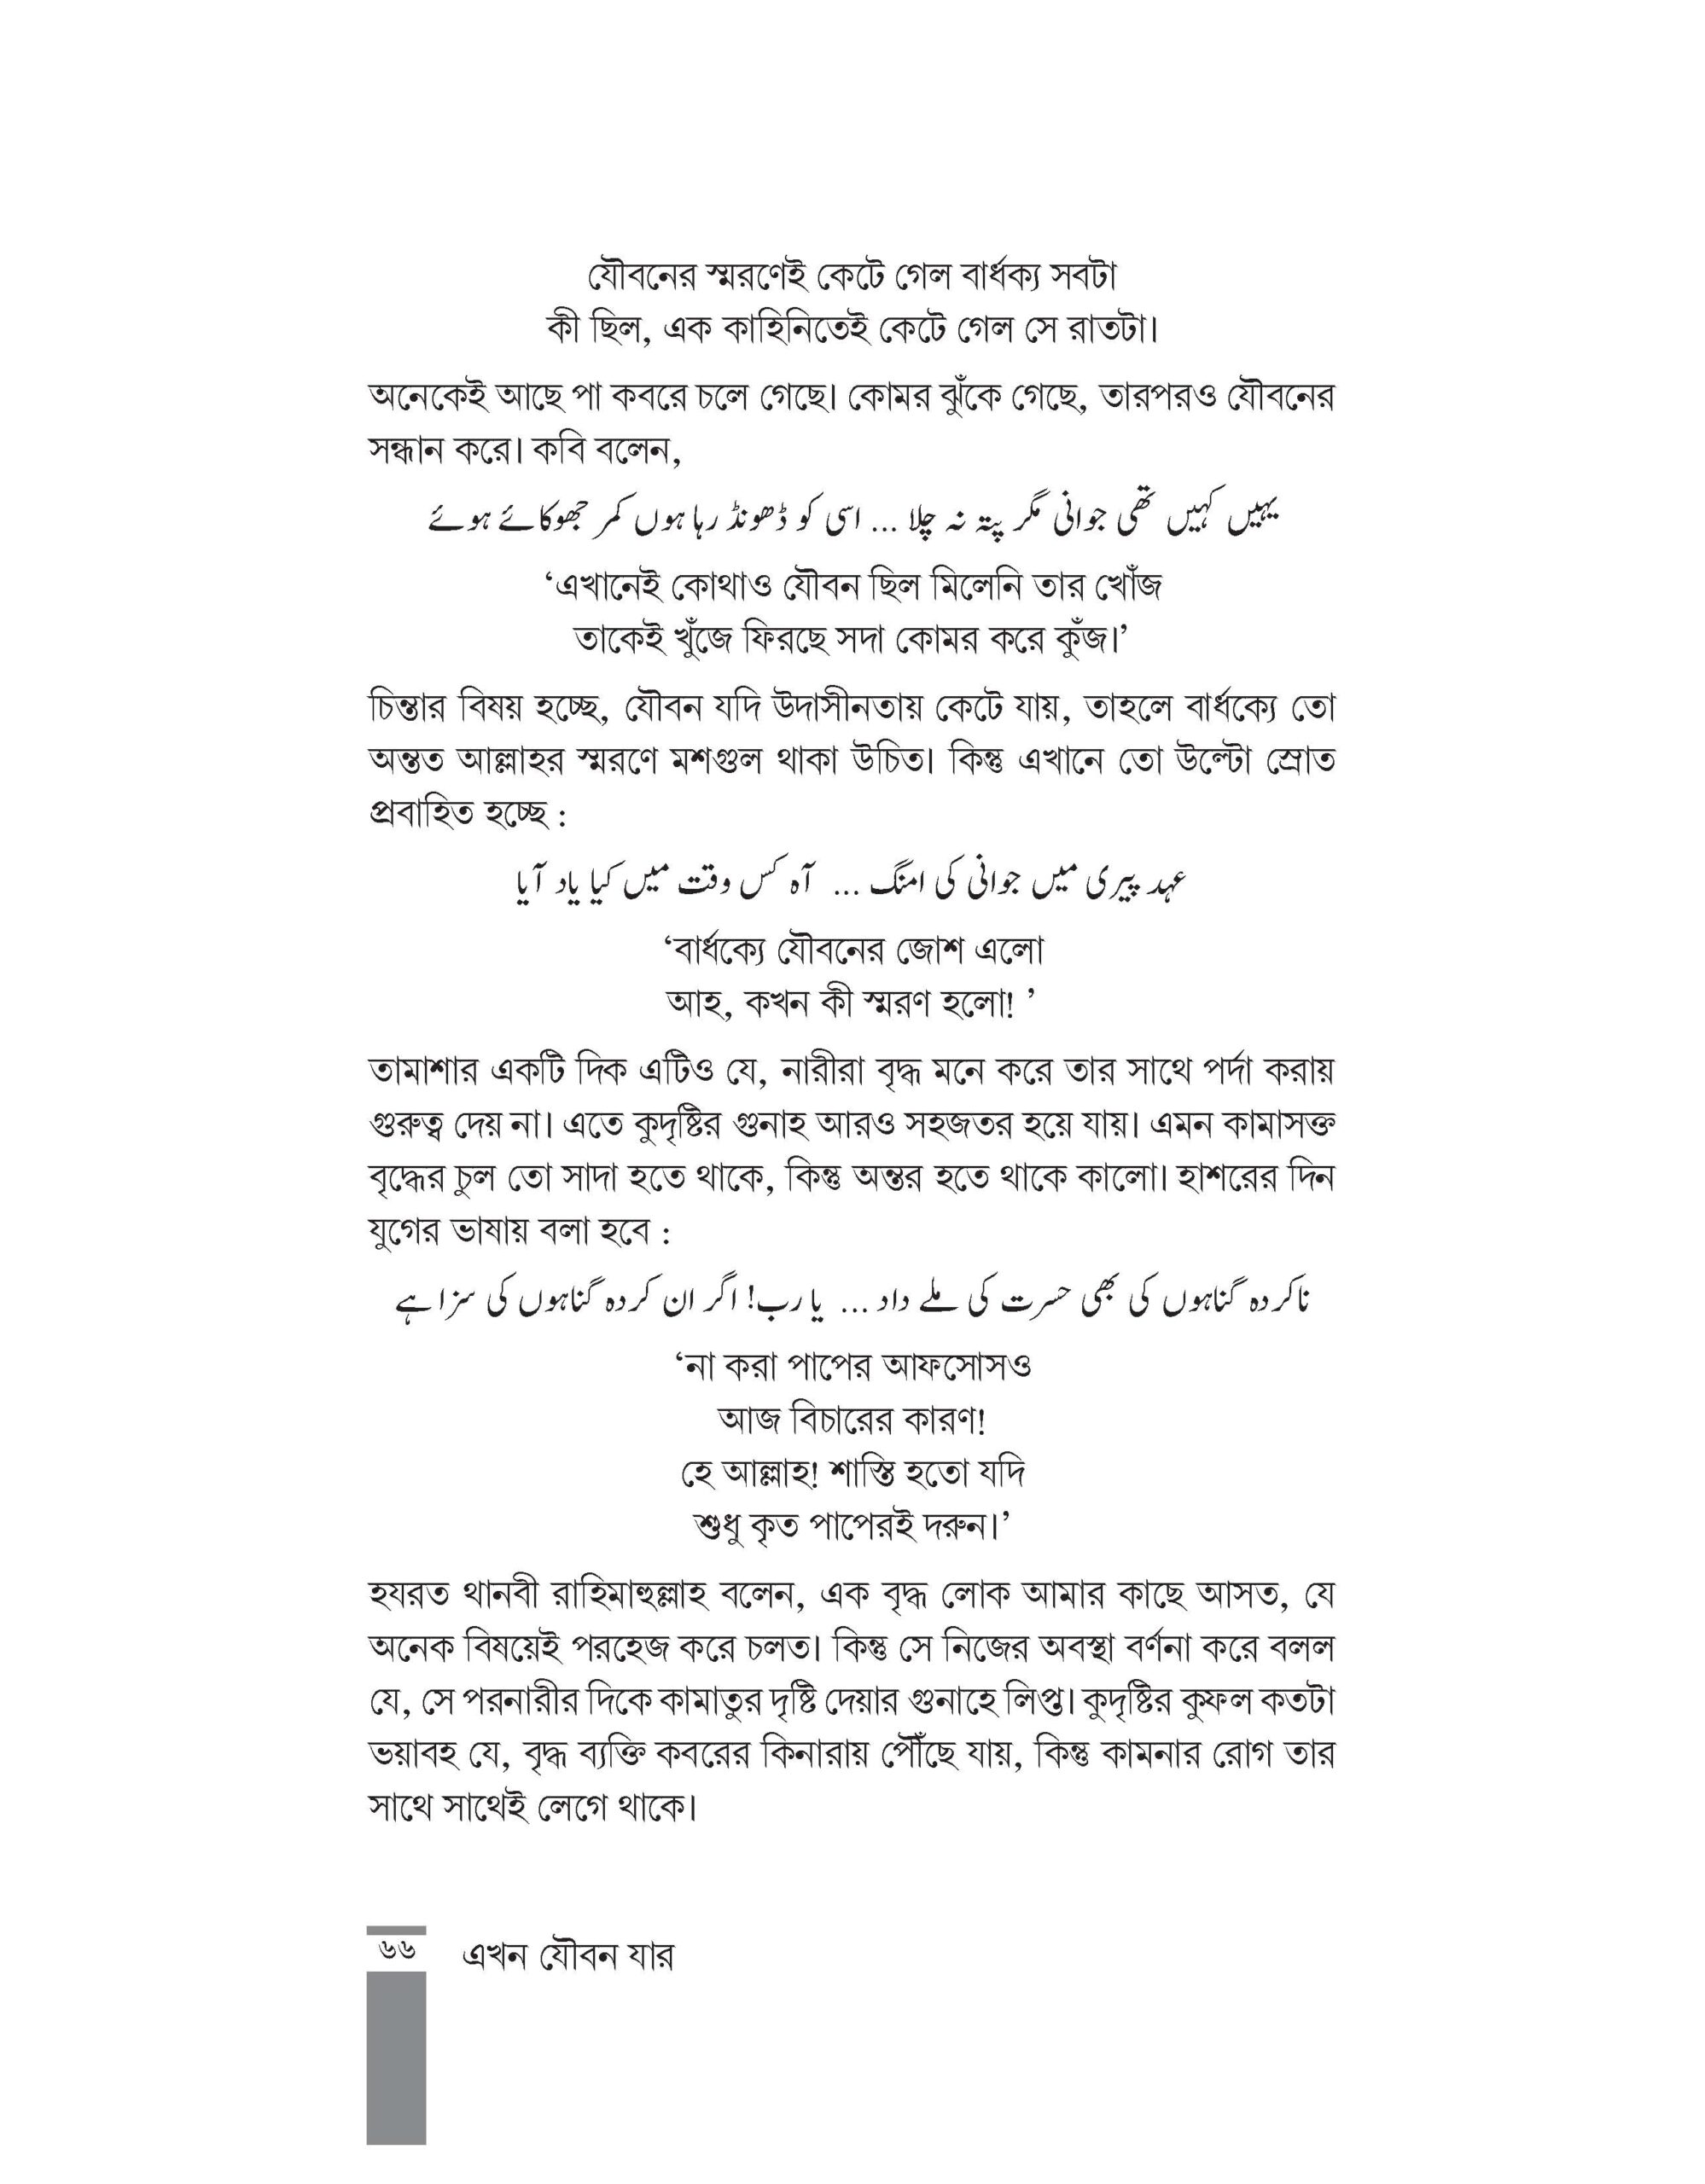 যৌবনের স্মরণেই কেটে গেল বার্ধক্য সবটা
কী ছিল, এক কাহিনিতেই কেটে গেল সে রাতটা।
অনেকেই আছে পা কবরে চলে গেছে। কোমর ঝুঁকে গেছে, তারপরও যৌবনের
সন্ধান করে। কবি বলেন,
یہیں کہیں تھی جوانی مگر پتہ نہ چلا ... اسی کو ڈھونڈ رہا ہوں کمر جھوکائے ہوئے
‘এখানেই কোথাও যৌবন ছিল মিলেনি তার খোঁজ
তাকেই খুঁজে ফিরছে সদা কোমর করে কুঁজ।’
চিন্তার বিষয় হচ্ছে, যৌবন যদি উদাসীনতায় কেটে যায়, তাহলে বার্ধক্যে তো
অন্তত আল্লাহর স্মরণে মশগুল থাকা উচিত। কিন্তু এখানে তো উল্টো স্রোত
প্রবাহিত হচ্ছে :
عہد پیری میں جوانی کی امنگ ... آہ کس وقت میں کیا یاد آیا
‘বার্ধক্যে যৌবনের জোশ এলো
আহ, কখন কী স্মরণ হলো! ’
তামাশার একটি দিক এটিও যে, নারীরা বৃদ্ধ মনে করে তার সাথে পর্দা করায়
গুরুত্ব দেয় না। এতে কুদৃষ্টির গুনাহ আরও সহজতর হয়ে যায়। এমন কামাসক্ত
বৃদ্ধের চুল তো সাদা হতে থাকে, কিন্তু অন্তর হতে থাকে কালো। হাশরের দিন
যুগের ভাষায় বলা হবে :
ناکردہ گناہوں کی بھی حسرت کی ملے داد ... یا رب! اگر ان کردہ گناہوں کی سزا ہے
‘না করা পাপের আফসোসও
আজ বিচারের কারণ!
হে আল্লাহ! শাস্তি হতো যদি
শুধু কৃত পাপেরই দরুন।’
হযরত থানবী রাহিমাহুল্লাহ বলেন, এক বৃদ্ধ লোক আমার কাছে আসত, যে
অনেক বিষয়েই পরহেজ করে চলত। কিন্তু সে নিজের অবস্থা বর্ণনা করে বলল
যে, সে পরনারীর দিকে কামাতুর দৃষ্টি দেয়ার গুনাহে লিপ্ত। কুদৃষ্টির কুফল কতটা
ভয়াবহ যে, বৃদ্ধ ব্যক্তি কবরের কিনারায় পৌঁছে যায়, কিন্তু কামনার রোগ তার
সাথে সাথেই লেগে থাকে।
৬৬ এখন যৌবন যার